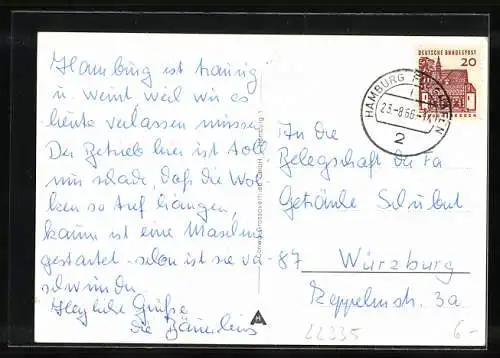 Hamburg ist traurig
u. weint, weil wir es
heute verlassen müssen.
Der Betrieb hier ist toll
nur schade, daß die Wol-
ken so tief hängen,
kaum ist eine Maschine
gestartet - schon ist sie ver-
schwunden.
Herzliche Grüße
die Bäuerleins
DEUTSCHE BUNDESPOST
20
HAMBURG FLUGHAFEN
23.-8.66
2
An die
Belegschaft der Fa
Getränke Schubert
87 Würzburg
Zeppelinstr. 3a
22335
6,-